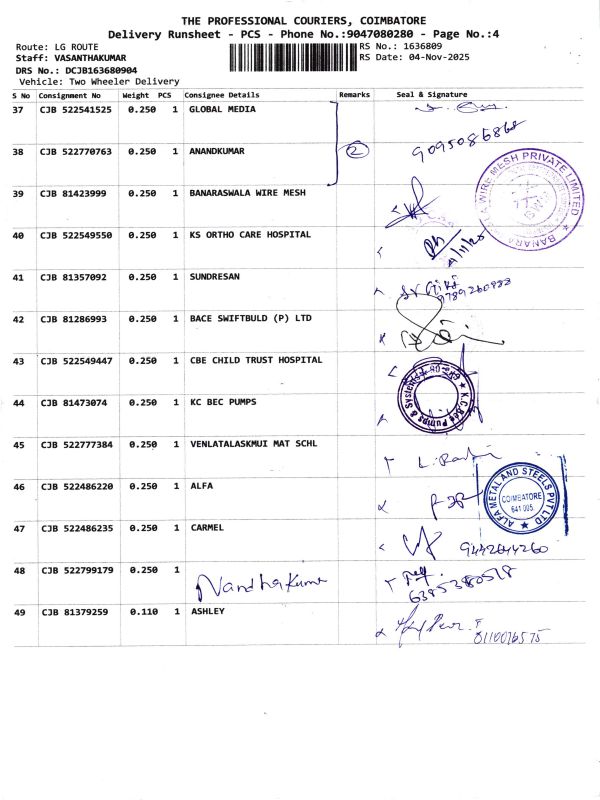 THE PROFESSIONAL COURIERS, COIMBATORE
Delivery Runsheet - PCS - Phone No.:9047080280 - Page No.:4
Route: LG ROUTE RS No.: 1636809
Staff: VASANTHAKUMAR RS Date: 04-Nov-2025
DRS No.: DCJB163680904
Vehicle: Two Wheeler Delivery
S No Consignment No Weight PCS Consignee Details Remarks Seal & Signature
37 CJB 522541525 0.250 1 GLOBAL MEDIA
38 CJB 522770763 0.250 1 ANANDKUMAR 2
39 CJB 81423999 0.250 1 BANARASWALA WIRE MESH
40 CJB 522549550 0.250 1 KS ORTHO CARE HOSPITAL
41 CJB 81357092 0.250 1 SUNDRESAN
42 CJB 81286993 0.250 1 BACE SWIFTBULD (P) LTD
43 CJB 522549447 0.250 1 CBE CHILD TRUST HOSPITAL
44 CJB 81473074 0.250 1 KC BEC PUMPS
45 CJB 522777384 0.250 1 VENLATALASKMUI MAT SCHL
46 CJB 522486220 0.250 1 ALFA
ALFA METAL AND STEELS PVT LTD
COIMBATORE
641 005
47 CJB 522486235 0.250 1 CARMEL
48 CJB 522799179 0.250 1 Nandhakumar
49 CJB 81379259 0.110 1 ASHLEY